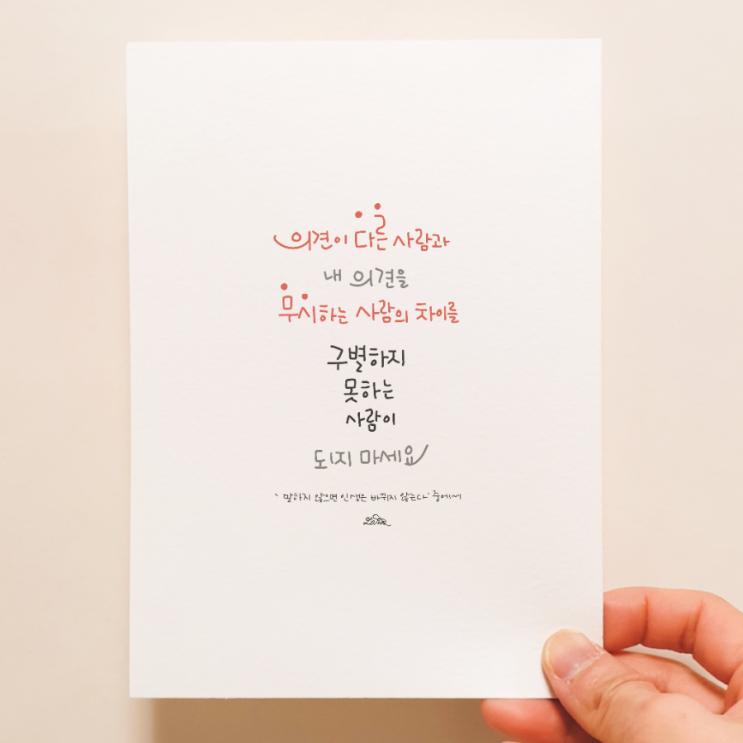 의견이 다른 사람과
내 의견을
무시하는 사람의 차이를
구별하지
못하는
사람이
되지 마세요
" 말하지 않으면 인생은 바뀌지 않는다" 중에서